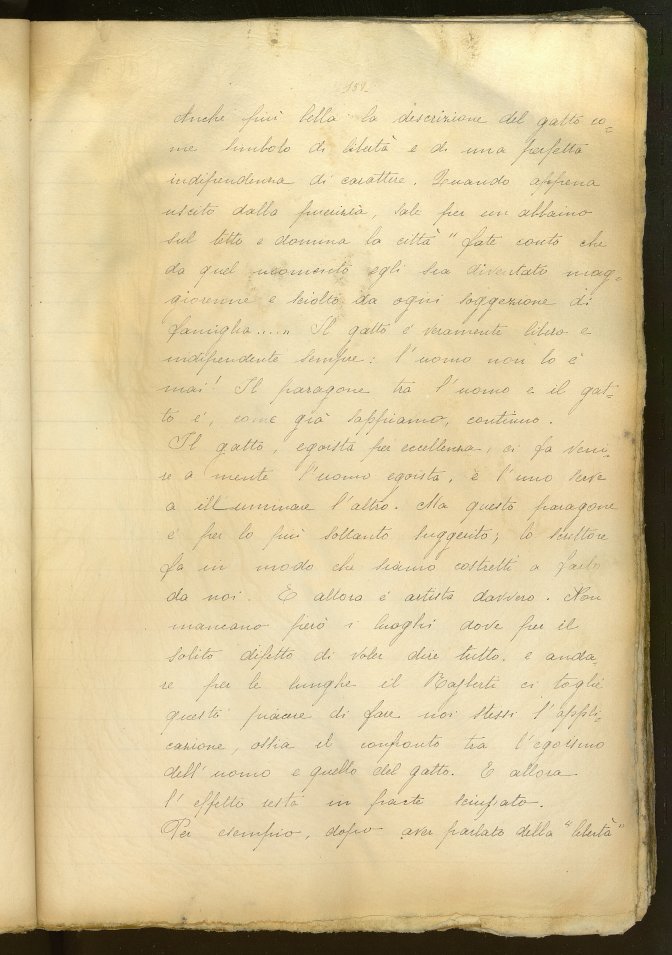 159
Anche più bella la descrizione del gatto co=
me simbolo di libertà e di una perfetta
indipendenza di carattere. Quando appena
uscito dalla puerizia, sale per un abbaino
sul tetto e domina la città " fate conto che
da quel momento egli sia diventato mag=
giorenne e sciolto da ogni soggezione di
famiglia....." Il gatto è veramente libero e
indipendente sempre: l'uomo non lo è
mai! Il paragone tra l'uomo e il gat=
to è, come già sappiamo, continuo.
Il gatto, egoista per eccellenza, ci fa veni=
re a mente l'uomo egoista, e l'uno serve
a illuminare l'altro. Ma questo paragone
è per lo più soltanto suggerito; lo scrittore
fa in modo che siamo costretti a farlo
da noi. E allora è artista davvero. Non
mancano però i luoghi dove per il
solito difetto di voler dire tutto e anda=
re per le lunghe il Rajberti ci toglie
questo piacere di fare noi stessi l'appli=
cazione, ossia il confronto tra l'egoismo
dell'uomo e quello del gatto. E allora
l'effetto resta in parte sciupato.
Per esempio, dopo aver parlato della "libertà"